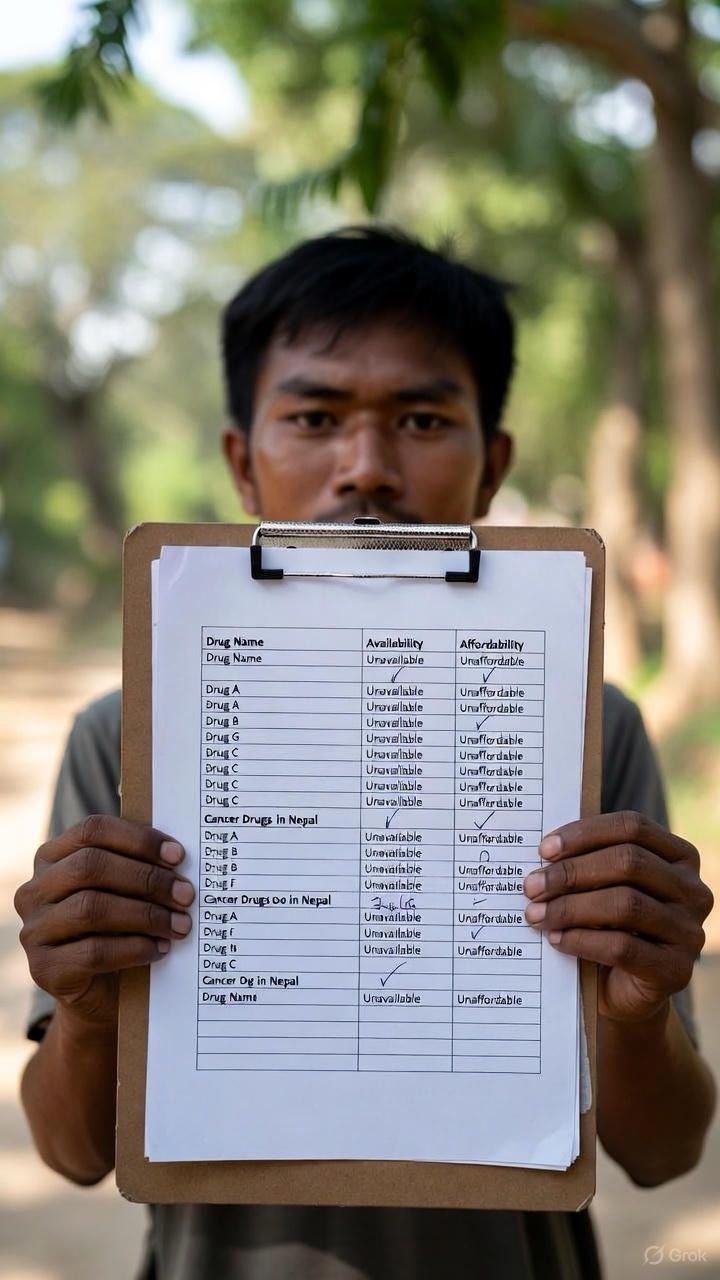 Drug Name Availability Affordability
Drug Name Unavailable Unaffordable
Drug A Unavailable Unaffordable
Drug A Unavailable Unaffordable
Drug B Unavailable
Drug G Unavailable Unaffordable
Drug C Unavailable Unaffordable
Drug C Unavailable Unaffordable
Drug C Unavailable Unaffordable
Drug C Unavailable Unaffordable
Cancer Drugs in Nepal
Drug A Unavailable Unaffordable
Drug B Unavailable
Drug B Unavailable Unaffordable
Drug F Unavailable Unaffordable
Cancer Drugs oo in Nepal
Drug A Unavailable Unaffordable
Drug F Unavailable
Drug Unavailable Unaffordable
Drug C
Cancer Og in Nepal
Drug Name Unavailable Unaffordable
Grok